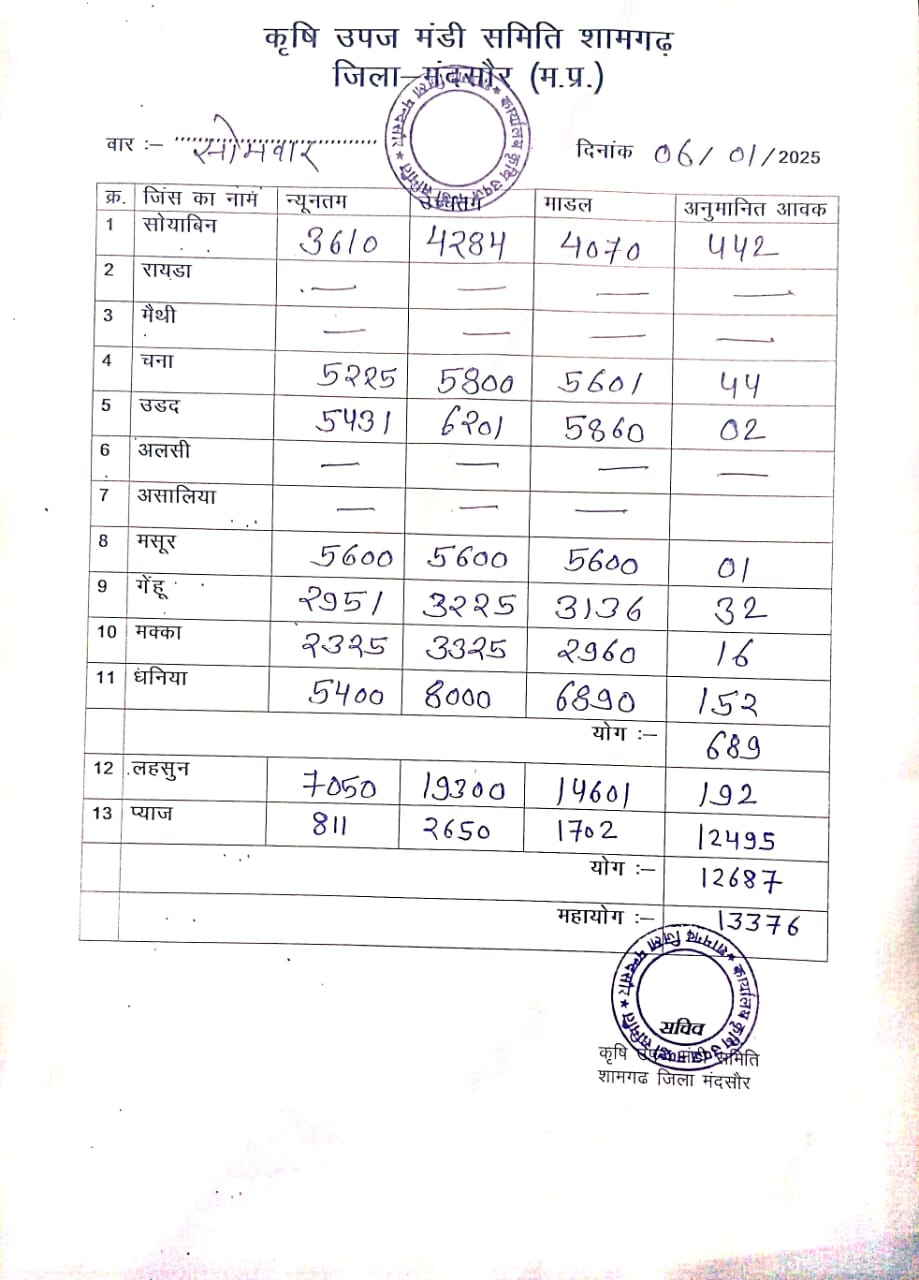 कृषि उपज मंडी समिति शामगढ़
जिला–मंदसौर (म.प्र.)
वार :– सोमवार दिनांक 06/01/2025
क्र. जिंस का नाम न्यूनतम उच्चतम माडल अनुमानित आवक
1 सोयाबिन 3610 4284 4070 442
2 रायडा — — — —
3 मैथी — — — —
4 चना 5225 5800 5601 44
5 उडद 5431 6201 5860 02
6 अलसी — — — —
7 असालिया — — —
8 मसूर 5600 5600 5600 01
9 गेंहू 2951 3225 3136 32
10 मक्का 2325 3325 2960 16
11 धनिया 5400 8000 6890 152
योग :– 689
12 लहसुन 7050 19300 14601 192
13 प्याज 811 2650 1702 12495
योग :– 12687
महायोग :– 13376
सचिव
कृषि उपज मंडी समिति
शामगढ जिला मंदसौर